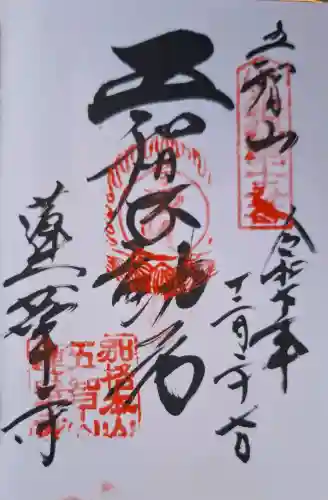 五智山
令和 年
十二月二十 日
五智不動尊
蓮華寺
別格本山
五智山
蓮華寺